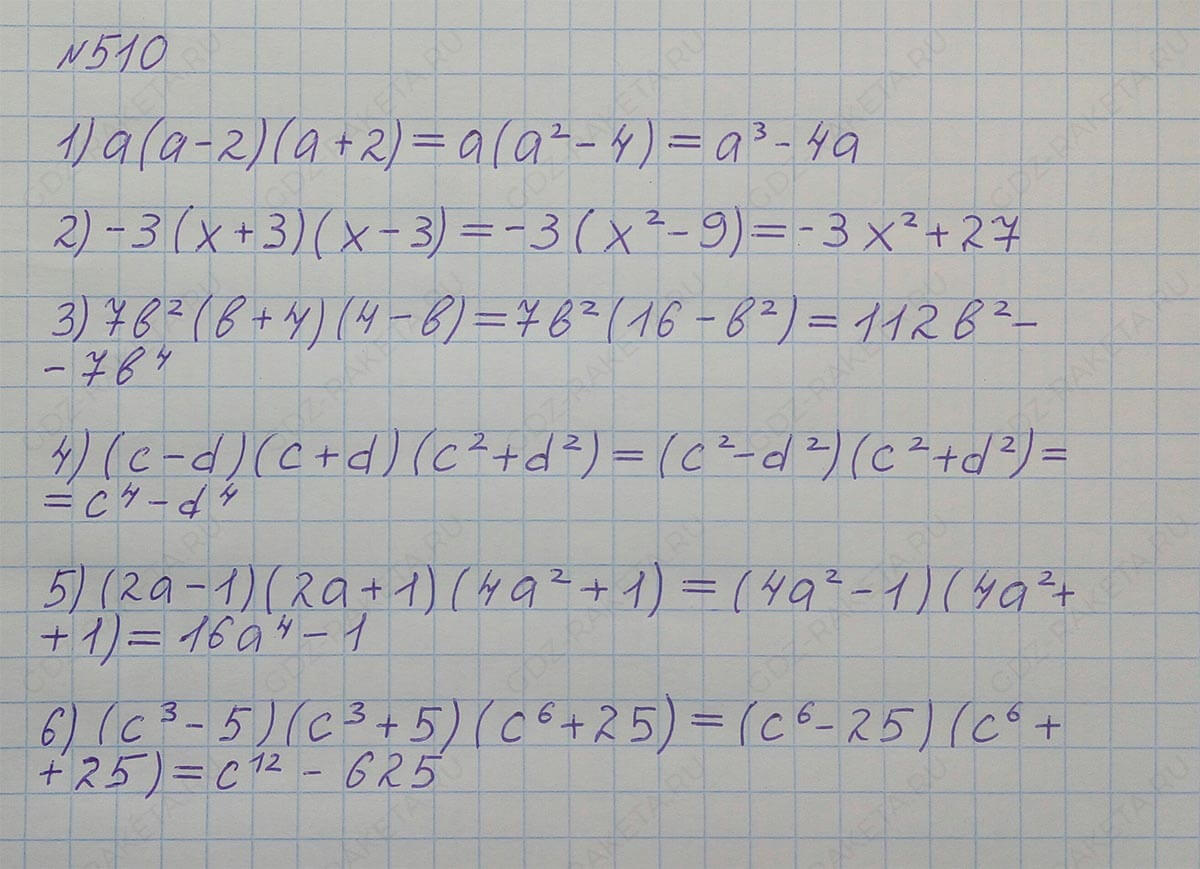 №510
1) a(a-2)(a+2)=a(a²-4)=a³-4a
2) -3(x+3)(x-3)=-3(x²-9)=-3x²+27
3) 7в²(в+4)(4-в)=7в²(16-в²)=112в²-
-7в⁴
4) (c-d)(c+d)(c²+d²)=(c²-d²)(c²+d²)=
=c⁴-d⁴
5) (2a-1)(2a+1)(4a²+1)=(4a²-1)(4a²+
+1)=16a⁴-1
6) (c³-5)(c³+5)(c⁶+25)=(c⁶-25)(c⁶+
+25)=c¹²-625
GDZ-RAKETA.RU